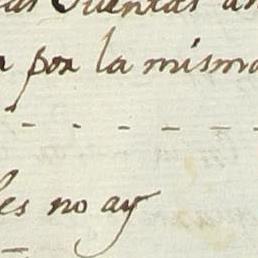 Cuentas
por la misma
les no ay